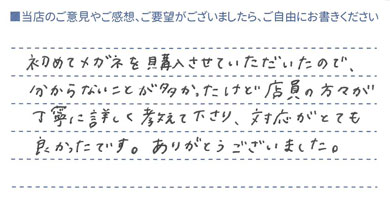 ■当店のご意見やご感想、ご要望がございましたら、ご自由にお書きください
初めてメガネを購入させていただいたので、
分からないことが多かったけど店員の方々が
丁寧に詳しく教えて下さり、対応がとても
良かったです。ありがとうございました。